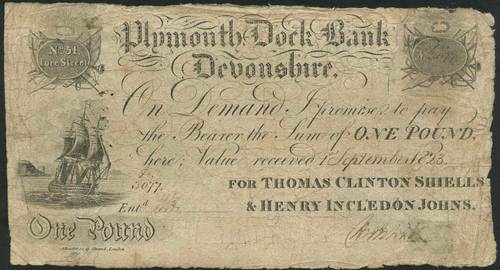 Plymouth Dock Bank
No. 51,
Fore Street
Devonshire.
On Demand I promise to pay
the Bearer the Sum of ONE POUND,
here; Value received 1 September 1823.
5077.
FOR THOMAS CLINTON SHIELLS
Entd
& HENRY INCLEDON JOHNS.
One Pound